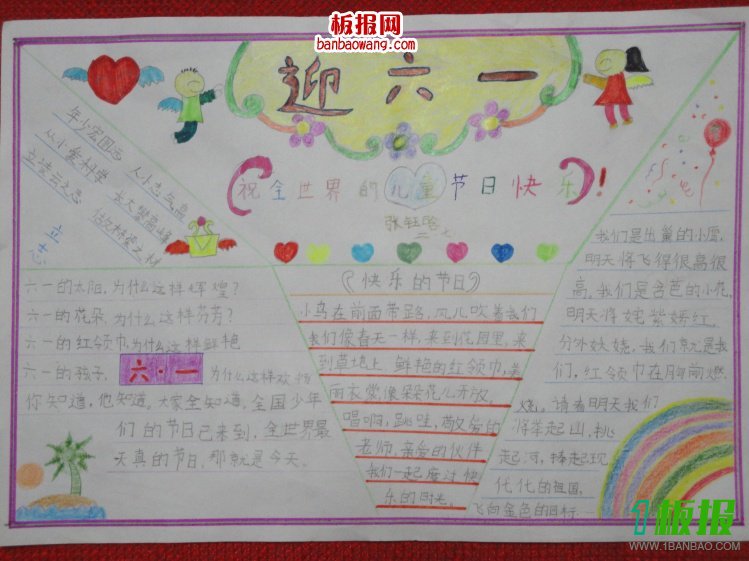 板报网
banbaowang.com
迎六一
祝全世界的儿童节日快乐!
年少宏图远
从小爱科学
立凌云之志
从小志气高
长大攀高峰
立志
快乐的节日
六一的太阳,为什么这样辉煌?
六一的花朵,为什么这样芬芳?
六一的红领巾为什么这样鲜艳
六一的孩子,六·一 为什么这样欢畅
你知道,他知道。大家全知道,全国少年
们的节日已来到,全世界最
天真的节日,那就是今天。
小鸟在前面带路,风儿吹着我们
我们像春天一样,来到花园里,来
到草地上 鲜艳的红领巾,美
丽衣裳像朵朵花儿开放。
唱啊,跳哇,敬爱的
老师,亲爱的伙伴
我们一起度过快
乐的时光。
我们是出巢的小鹰,
明天将飞得很高很
高。我们是含苞的小花,
明天将姹紫嫣红,
分外妖娆。我们就是我
们,红领巾在胸前燃
烧。请看明天我们
将举起山,挑
起河,捧起现
代化的祖国,
飞向金色的目标.
1板报
WWW.1BANBAO.COM